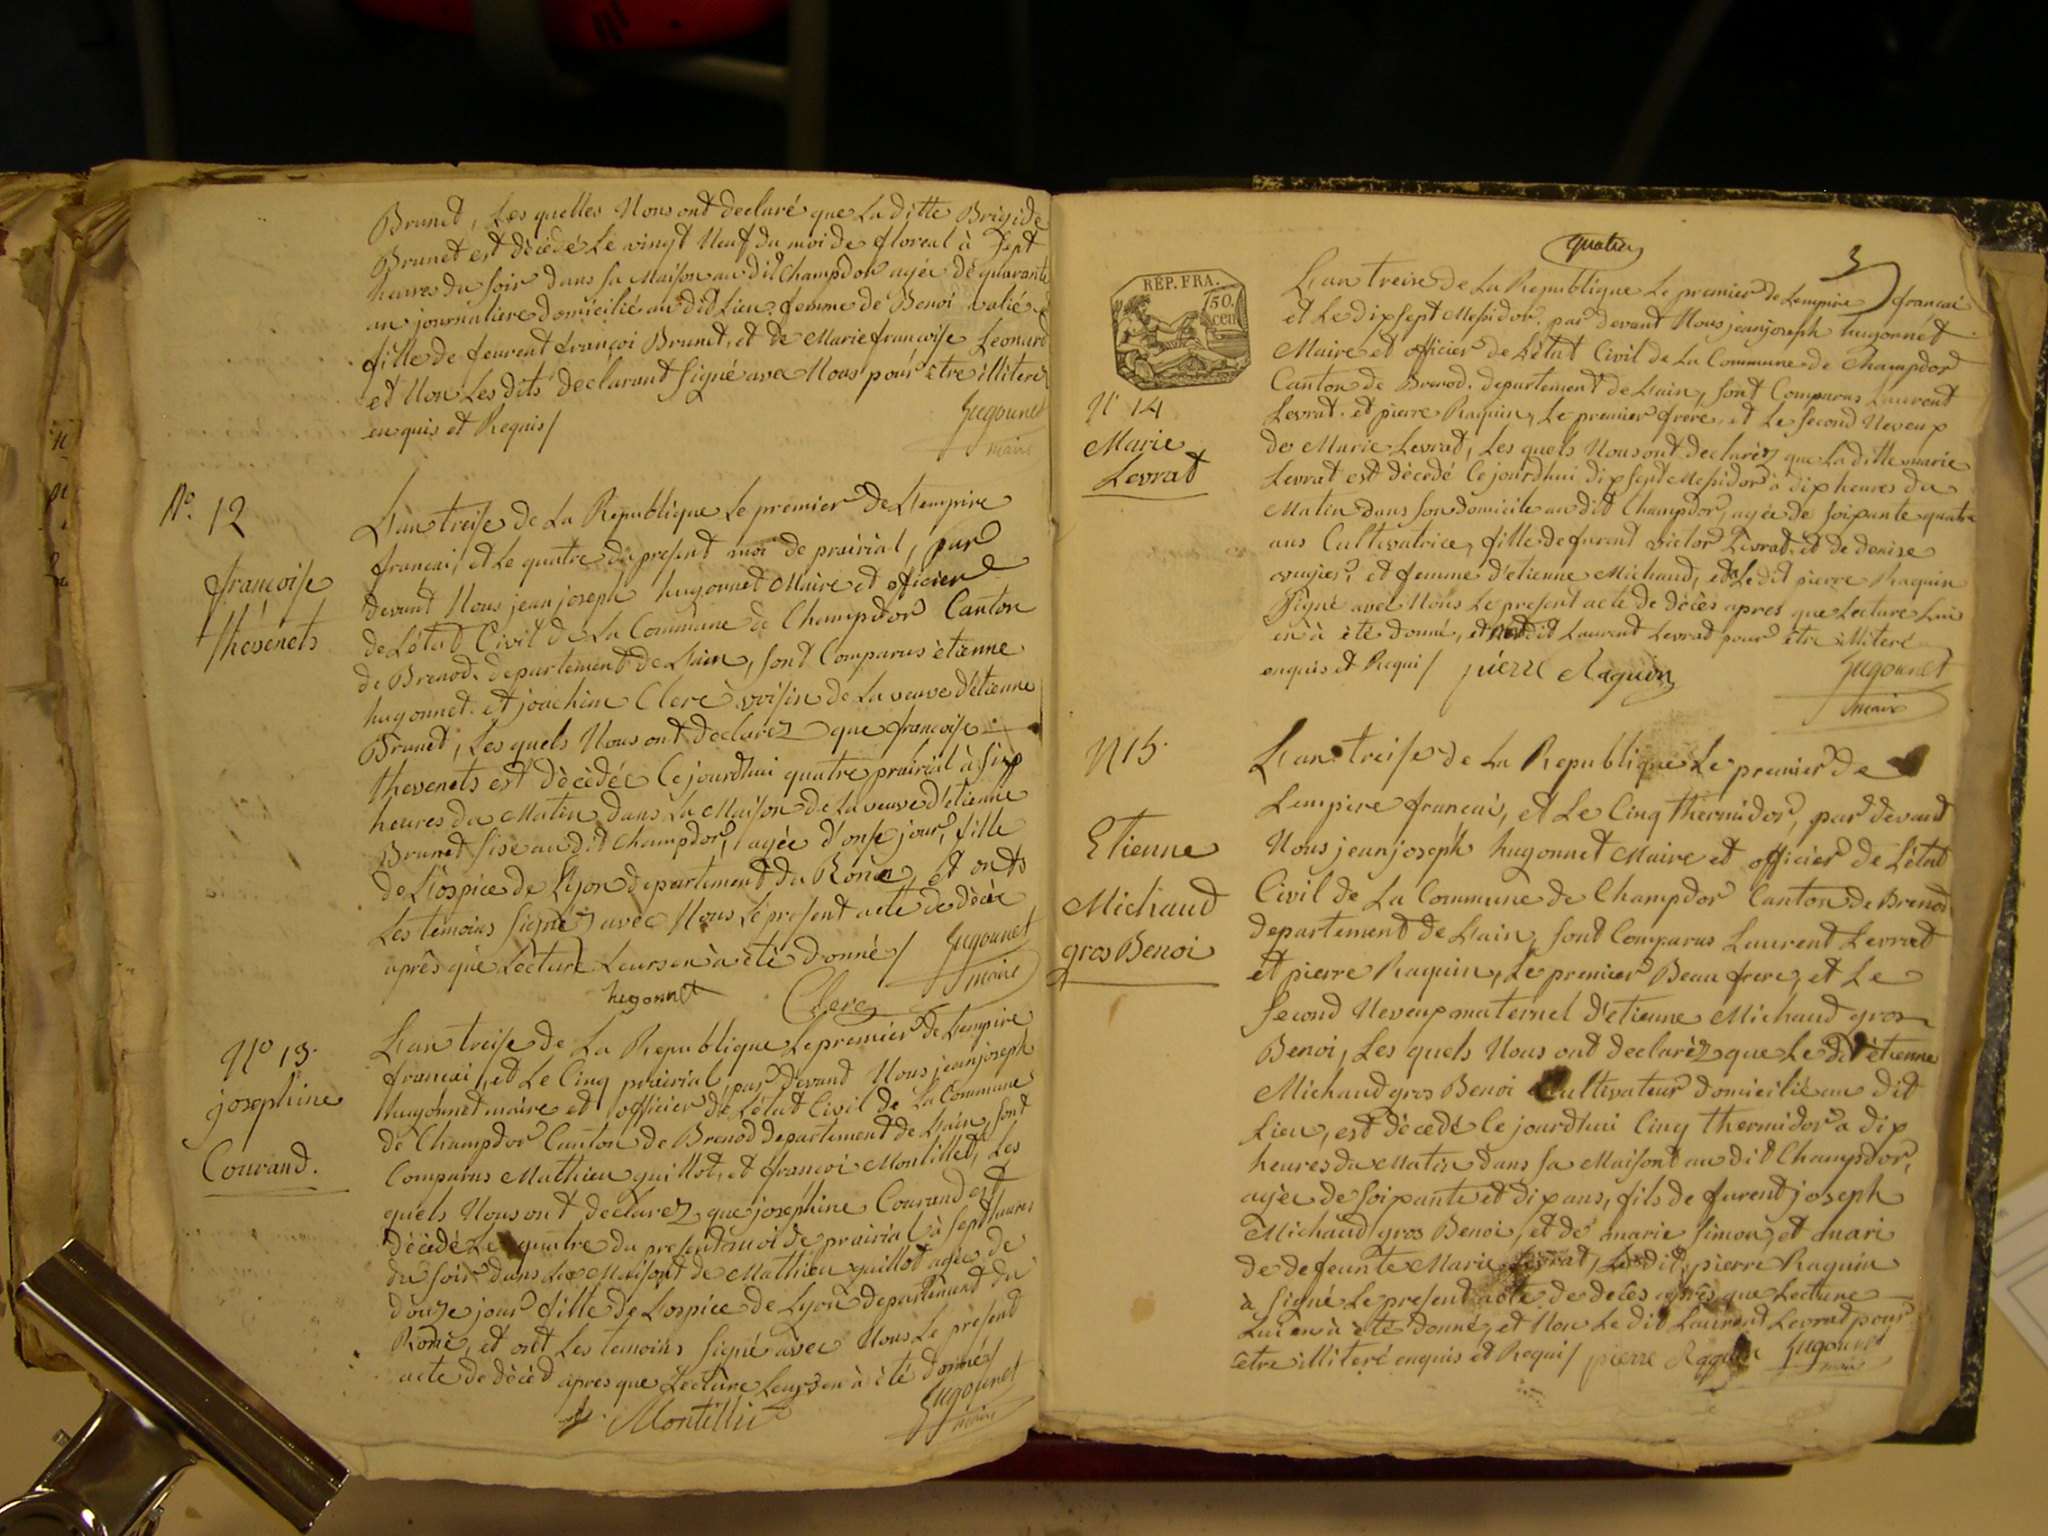 Brunet, Les quelles Nous ont declaré que La ditte Brigide
Brunet est dècedé Le vingt Neuf du moi de floreal à Sept
heures du soir dans sa Maison au dit Champdor agée de quarante
an journaliere domiciliée au dit Lieu, femme de Benoi
fille de feurent françoi Brunet, et de Marie françoise Leonard
et Non Les dits declarant Signé avec Nous pour être illiterez
enquis et Requis /
Hugonnet
maire
No. 12
françoise
thévenets
L'an treise de La Republique Le premier de L'empire
francai, et Le quatre du present moi de prairial, par
devant Nous jean joseph hugonnet Maire et officier
de L'état Civil de La Commune de Champdor Canton
de Brenod, departement de L'ain, sont Comparus ètienne
hugonnet et joachim Clerc voisin de La veuve d'étienne
Brunet, Les quels Nous ont declarez que françoise
thevenets est dècèdée Ce jourdhui quatre prairial à six
heures du Matin dans La Maison de La veuve d'etienne
Brunet sise au dit Champdor, agée d'onse jour, fille
de L'ospice de Lyon departement du Rone, et onts
Les temoins signé avec Nous Le present acte de dècè
après que Lecture Leurs en à été donné /
Hugonnet
maire
hugonnet Clerc
No 13.
josephine
Couvand.
L'an treise de La Republique Le premier de L'empire
francai, et Le Cinq prairial, par devant Nous jean joseph
hugonnet maire et officier de L'état Civil de La Commune
de Champdor Canton de Brenod departement de L'ain, sont
Comparus Mathieu guillot, et françoi Montillet, Les
quels Nous ont declarez que josephine Couvand est
dècèdé Le quatre du present moi de prairial à sept heures
du soir dans La Maisont de Mathieu guillot agée de
douze jour fille de L'ospice de Lyon departement du
Rone, et ont Les temoins signé avec Nous Le present
acte de dècèd apres que Lecture Leurs en à été donné /
Montillet
Hugonnet
maire
quatre
3
RÉP. FRA.
750.
cen
N 14
Marie
Levrat
L'an treise de La Republique Le premier de L'empire francai
et Le dix sept Messidor, par devant Nous jean joseph hugonnet
Maire et officier de L'état Civil de La Commune de Champdor
Canton de Brenod, departement de L'ain, sont Comparus Laurent
Levrat et pierre Raquin, Le premier frere, et Le Second Neveux
de Marie Levrat, Les quels Nous ont declaréz que La ditte marie
Levrat est dècedé Ce jourdhui dix sept Messidor à dix heures du
Matin dans son domicile au dit Champdor, agée de soixante quatre
ans Cultivatrice, fille de furent victor Levrat, et de denise
et femme d'etienne Michaud, et Le dit pierre Raquin
signé avec Nous Le present acte de dècès apres que Lecture Lui
en à été donné, et dit Laurent Levrat pour être illiteré
enquis et Requi / pierre Raquin
Hugonnet
maire
N 15.
Etienne
Michaud
gros Benoi
L'an treise de La Republique Le premier de
L'empire francai, et Le Cinq thermidor, par devant
Nous jean joseph hugonnet Maire et officier de L'état
Civil de La Commune de Champdor Canton de Brenod
departement de L'ain, sont Comparus Laurent Levrat
et pierre Raquin, Le premier Beau frere, et Le
Second Neveux maternel d'etienne Michaud gros
Benoi, Les quels Nous ont declaréz que Le dit étienne
Michaud gros Benoi Cultivateur domicilié au dit
Lieu, est dècedé Ce jourdhui Cinq thermidor à dix
heures du Matin dans sa Maisont au dit Champdor,
agée de soixante et dix ans, fils de furent joseph
Michaud gros Benoi, et de marie simon, et mari
de defeunte Marie Levrat, Le dit pierre Raquin
à signé Le present acte de decès après que Lecture
Lui en à été donné, et Non Le dit Laurent Levrat pour
être illiteré enquis et Requi / pierre Raquin
Hugonnet
maire